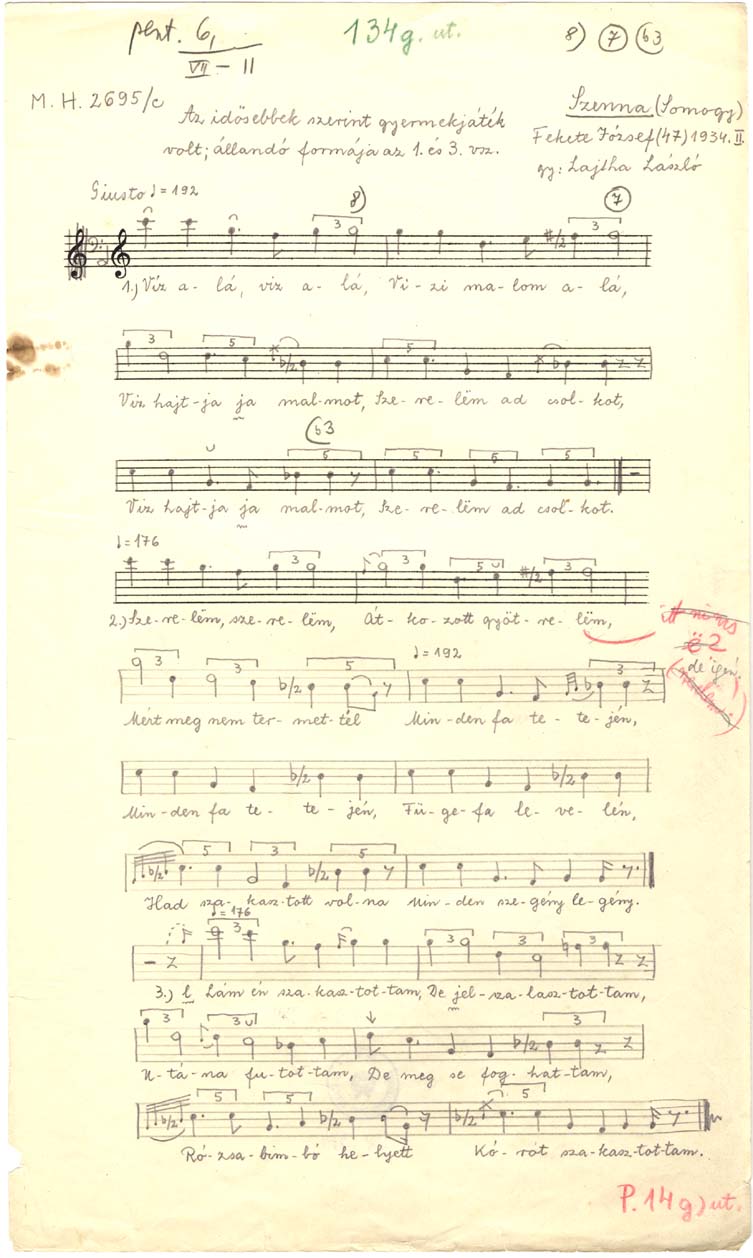 pent. 6,
VII - 11
134 g. ut.
8) 7 b3
M. H. 2695/c
Az idősebbek szerint gyermekjáték
volt; állandó formája az 1. és 3. vsz.
Szenna (Somogy)
Fekete József (47) 1934. II.
gy: Lajtha László
Giusto ♩ = 192
8) 7
1.) Víz a - lá, víz a - lá, Vi - zi ma - lom a - lá,
Víz hajt - ja ja mal - mot, Sze - re - lëm ad csol - kot,
b3
Víz hajt - ja ja mal - mot, Sze - re - lëm ad csol - kot.
♩ = 176
2.) Sze - re - lëm, sze - re - lëm, Át - ko - zott gyöt - re - lëm,
ë 2
de igen.
♩ = 192
Mért meg nem ter - met - tél Min - den fa te - te - jén,
Min - den fa te - te - jén, Fü - ge - fa le - ve - lén,
Had sza - kasz - tott vol - na Min - den sze - gény le - gény.
♩ = 176
3.) l Lám én sza - kasz - tot - tam, De jel - sza - lasz - tot - tam,
U - tá - na fu - tot - tam, De meg se fog - hat - tam,
Ró - zsa - bim - bó he - lyett Kó - rót sza - kasz - tot - tam.
P. 14 g) ut.